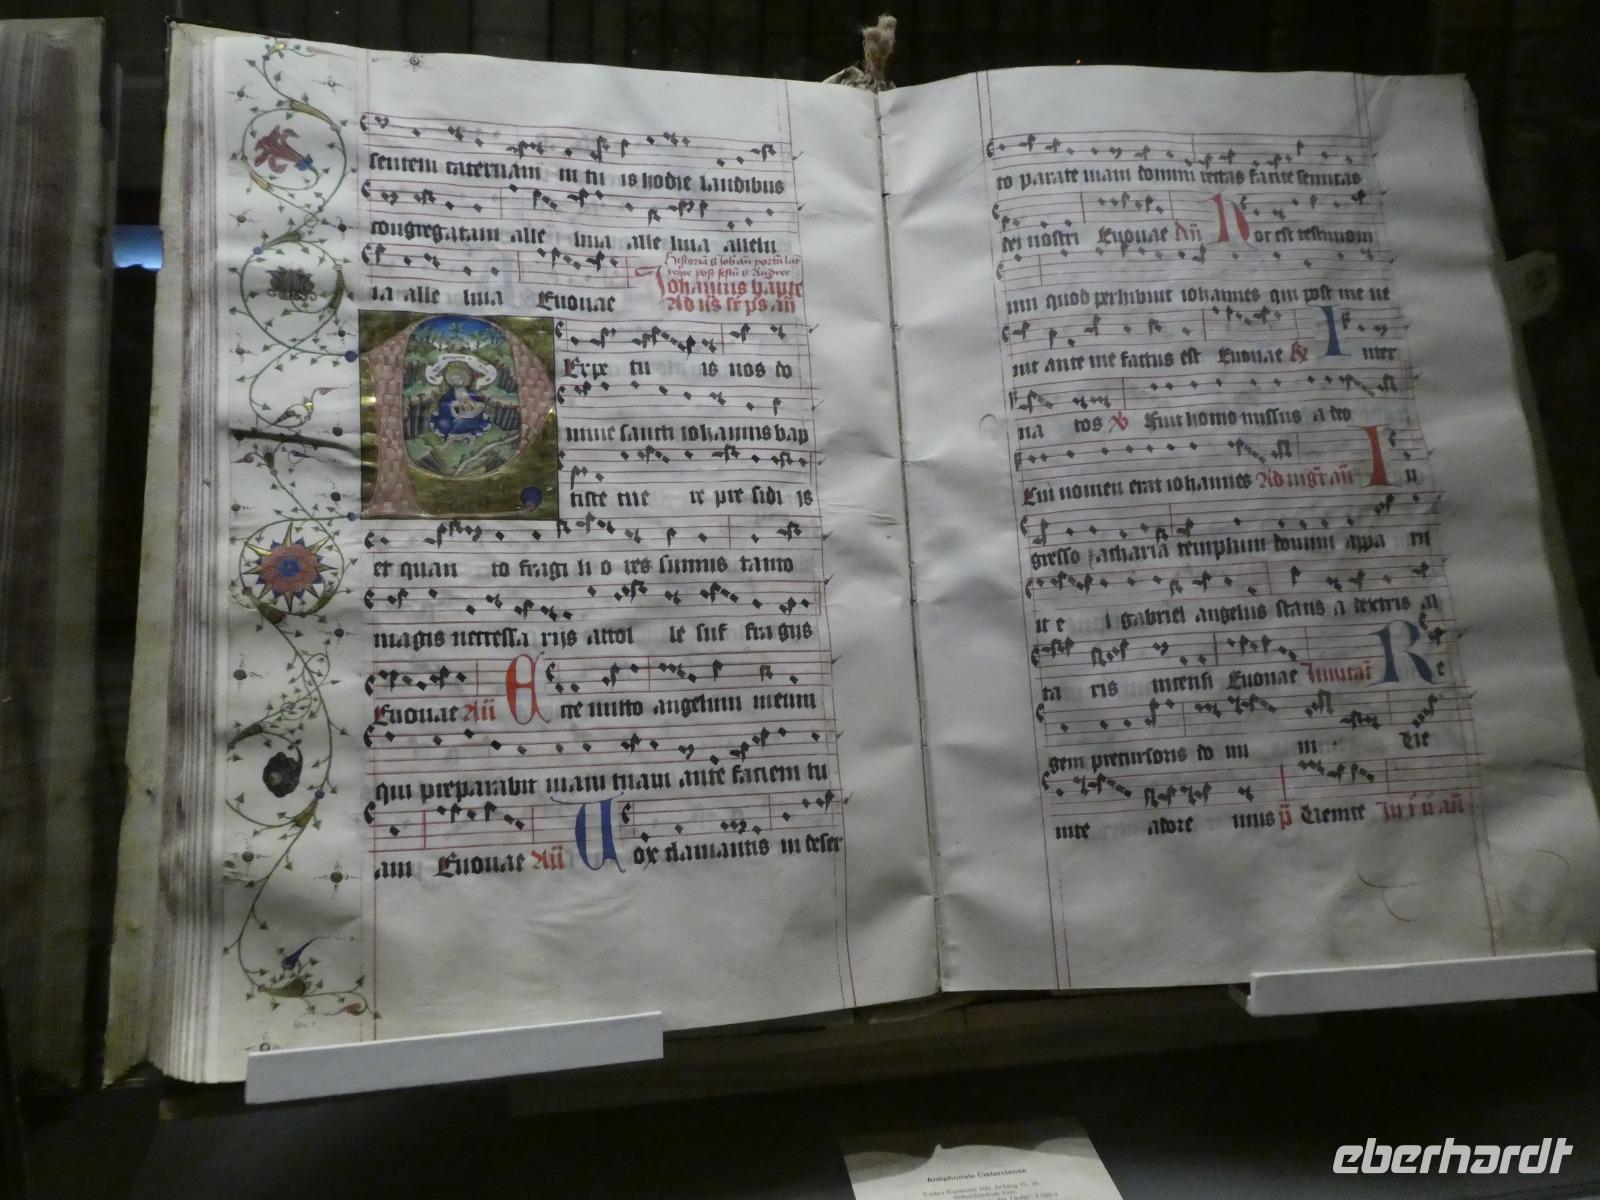 sentem caternam in tu is hodie laudibus
congregatam alle luia alle luia allelu
ia alle luia Euouae
Johannis bapte
Ad us
P Erpe tu is nos do
mine sancti iohannis bap
tiste tue re pre sidi is
et quan to fragi li o res sumus tanto
magis necessa rijs attol le suf fragijs
Euouae Añ E cce mitto angelum meum
qui preparabit uiam tuam ante faciem tu
am Euouae Añ U ox clamantis in deser
to parate uiam domini rectas facite semitas
dei nostri Euouae Añ H oc est testimoni
um quod perhibuit iohannes qui post me ue
nit ante me factus est Euouae I nter
na tos Fuit homo missus a deo
Cui nomen erat iohannes Ad mgr añ I n
gresso zacharia templum domini appa ru
it e i gabriel angelus stans a dextris al
ta ris incensi Euouae Inuitat R e
gem precursoris do mi ni Ue
nite adore mus p Uenite
Antiphonale Cisterciense
eberhardt